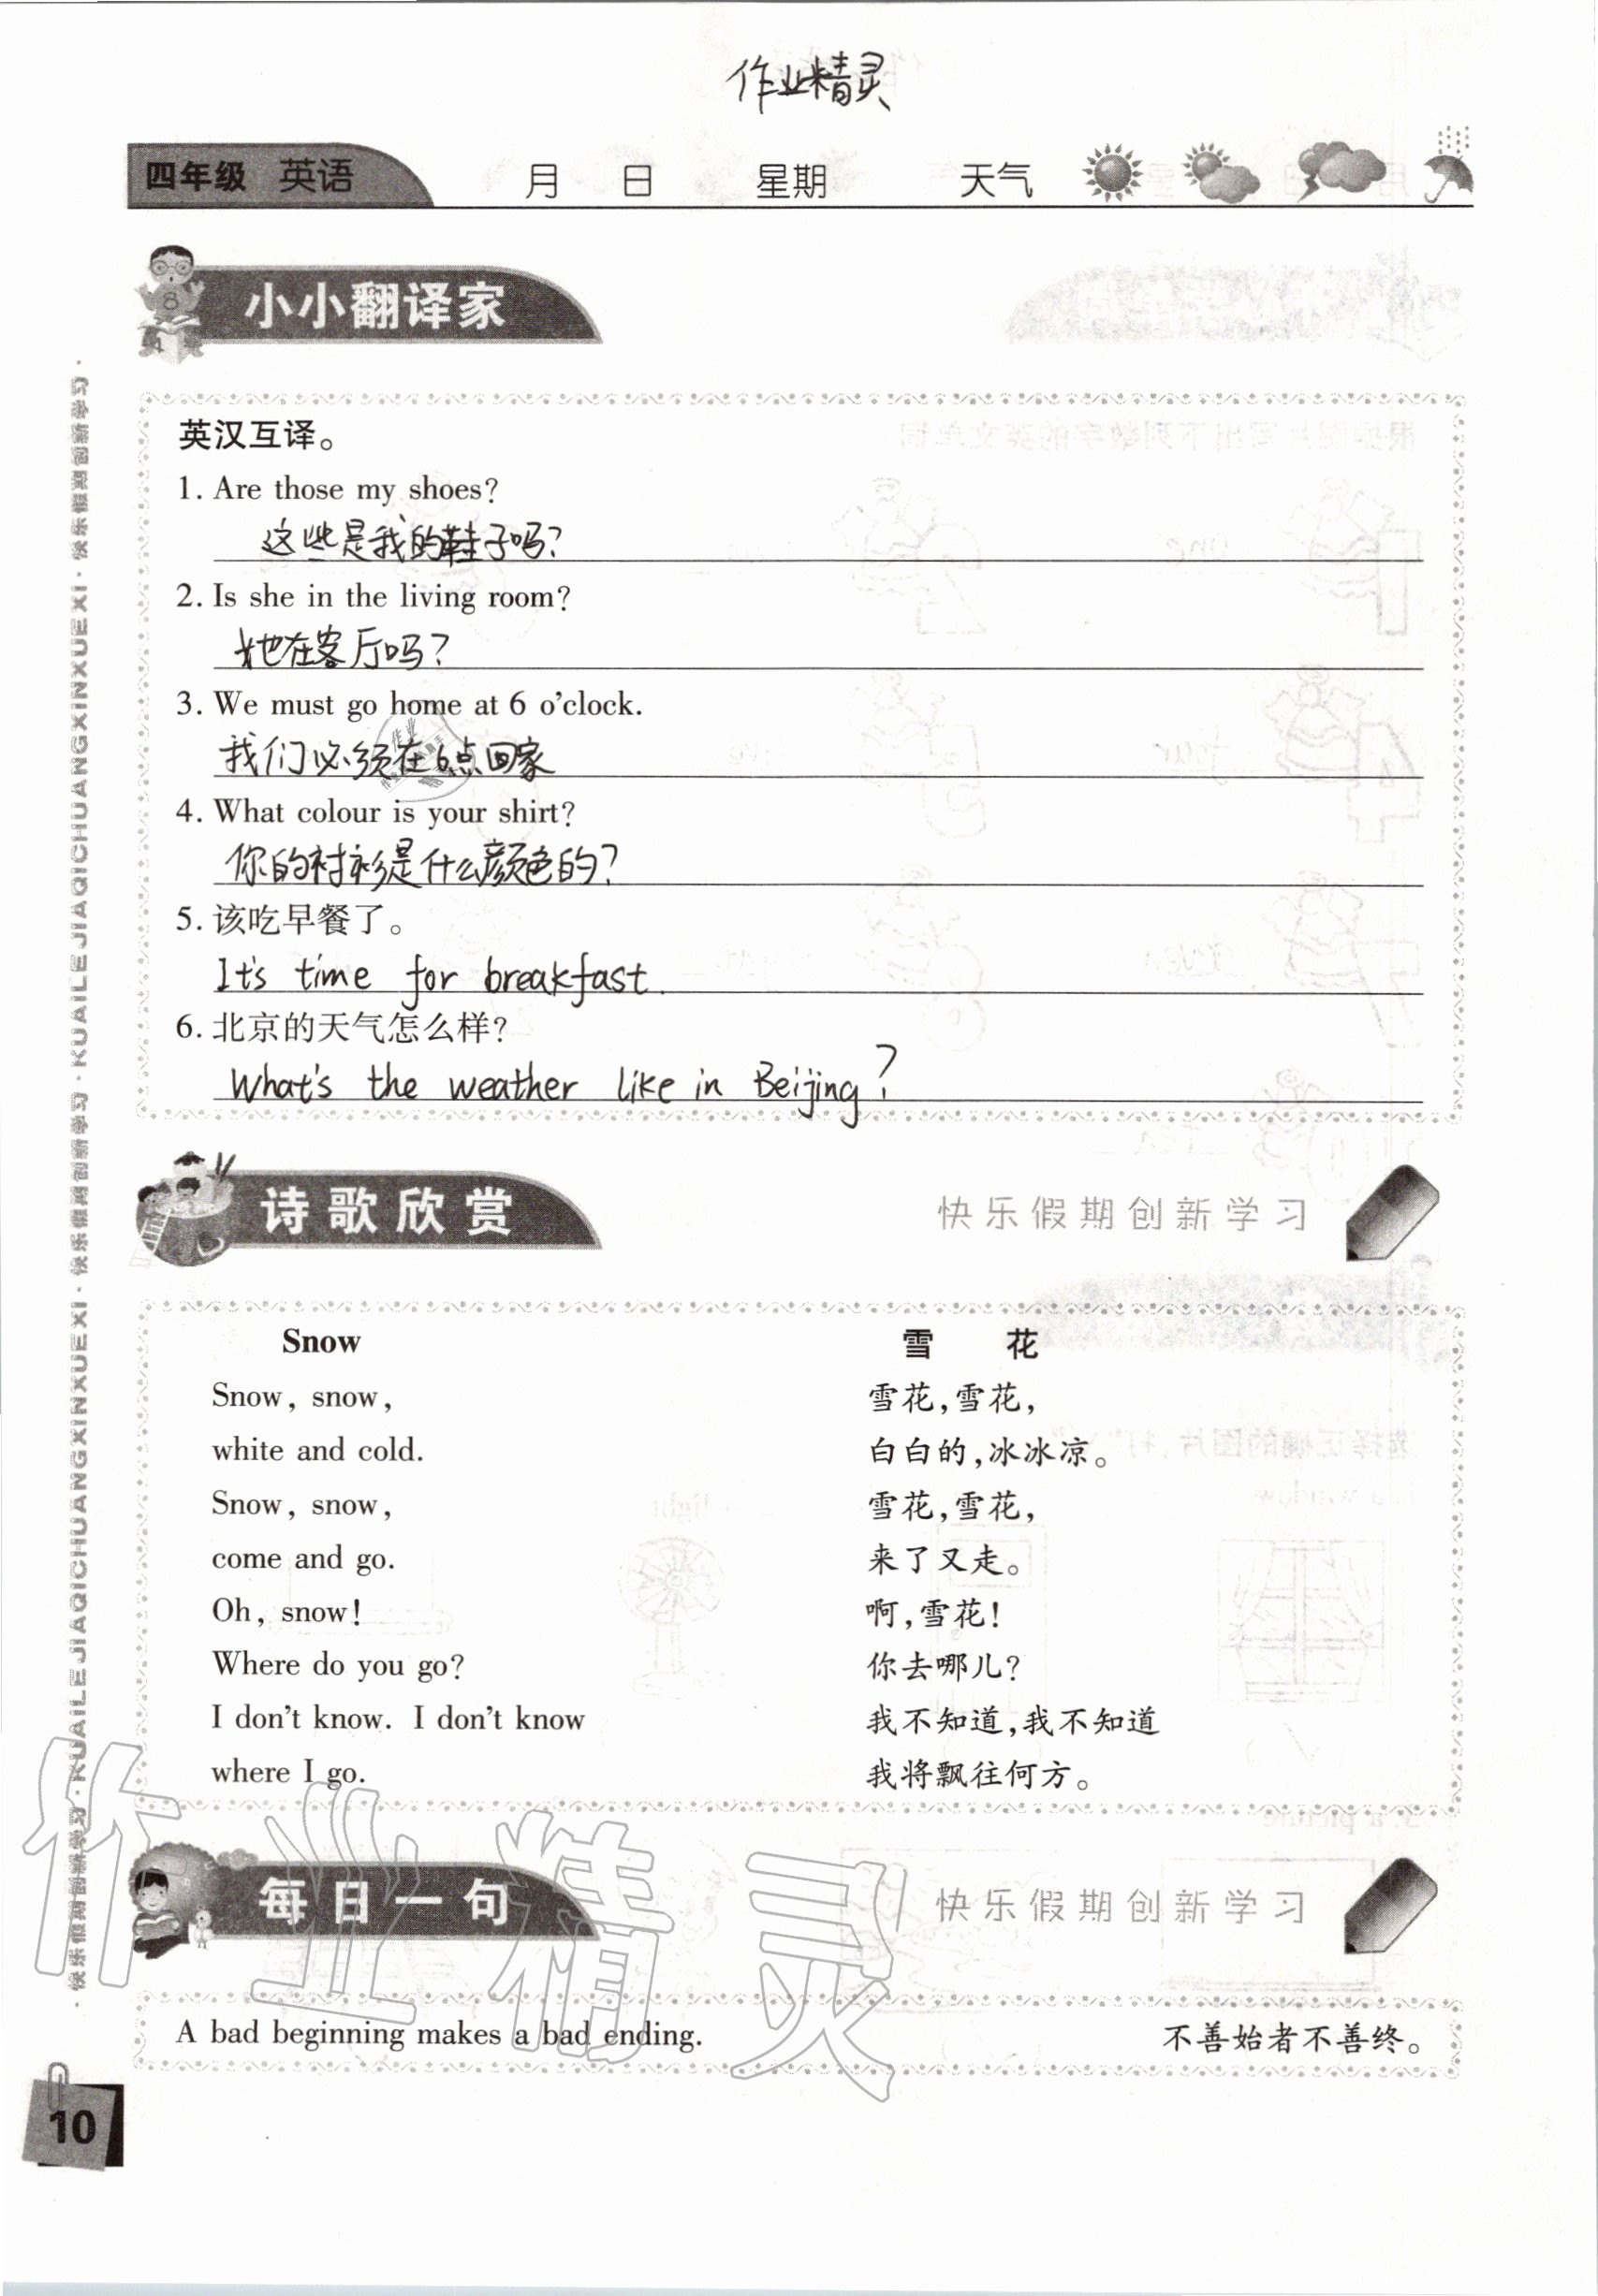 作业精灵
四年级 英语 月 日 星期 天气
小小翻译家
英汉互译。
1. Are those my shoes?
这些是我的鞋子吗?
2. Is she in the living room?
她在客厅吗?
3. We must go home at 6 o'clock.
我们必须在6点回家
4. What colour is your shirt?
你的衬衫是什么颜色的?
5. 该吃早餐了。
It's time for breakfast.
6. 北京的天气怎么样?
What's the weather like in Beijing?
诗歌欣赏 快乐假期创新学习
Snow
Snow, snow,
white and cold.
Snow, snow,
come and go.
Oh, snow!
Where do you go?
I don't know. I don't know
where I go.
雪 花
雪花,雪花,
白白的,冰冰凉。
雪花,雪花,
来了又走。
啊,雪花!
你去哪儿?
我不知道,我不知道
我将飘往何方。
每日一句 快乐假期创新学习
A bad beginning makes a bad ending. 不善始者不善终。
10
·快乐假期创新学习·KUAILEJIAQICHUANGXINXUEXI·快乐假期创新学习·KUAILEJIAQICHUANGXINXUEXI·快乐假期创新学习·
作业精灵